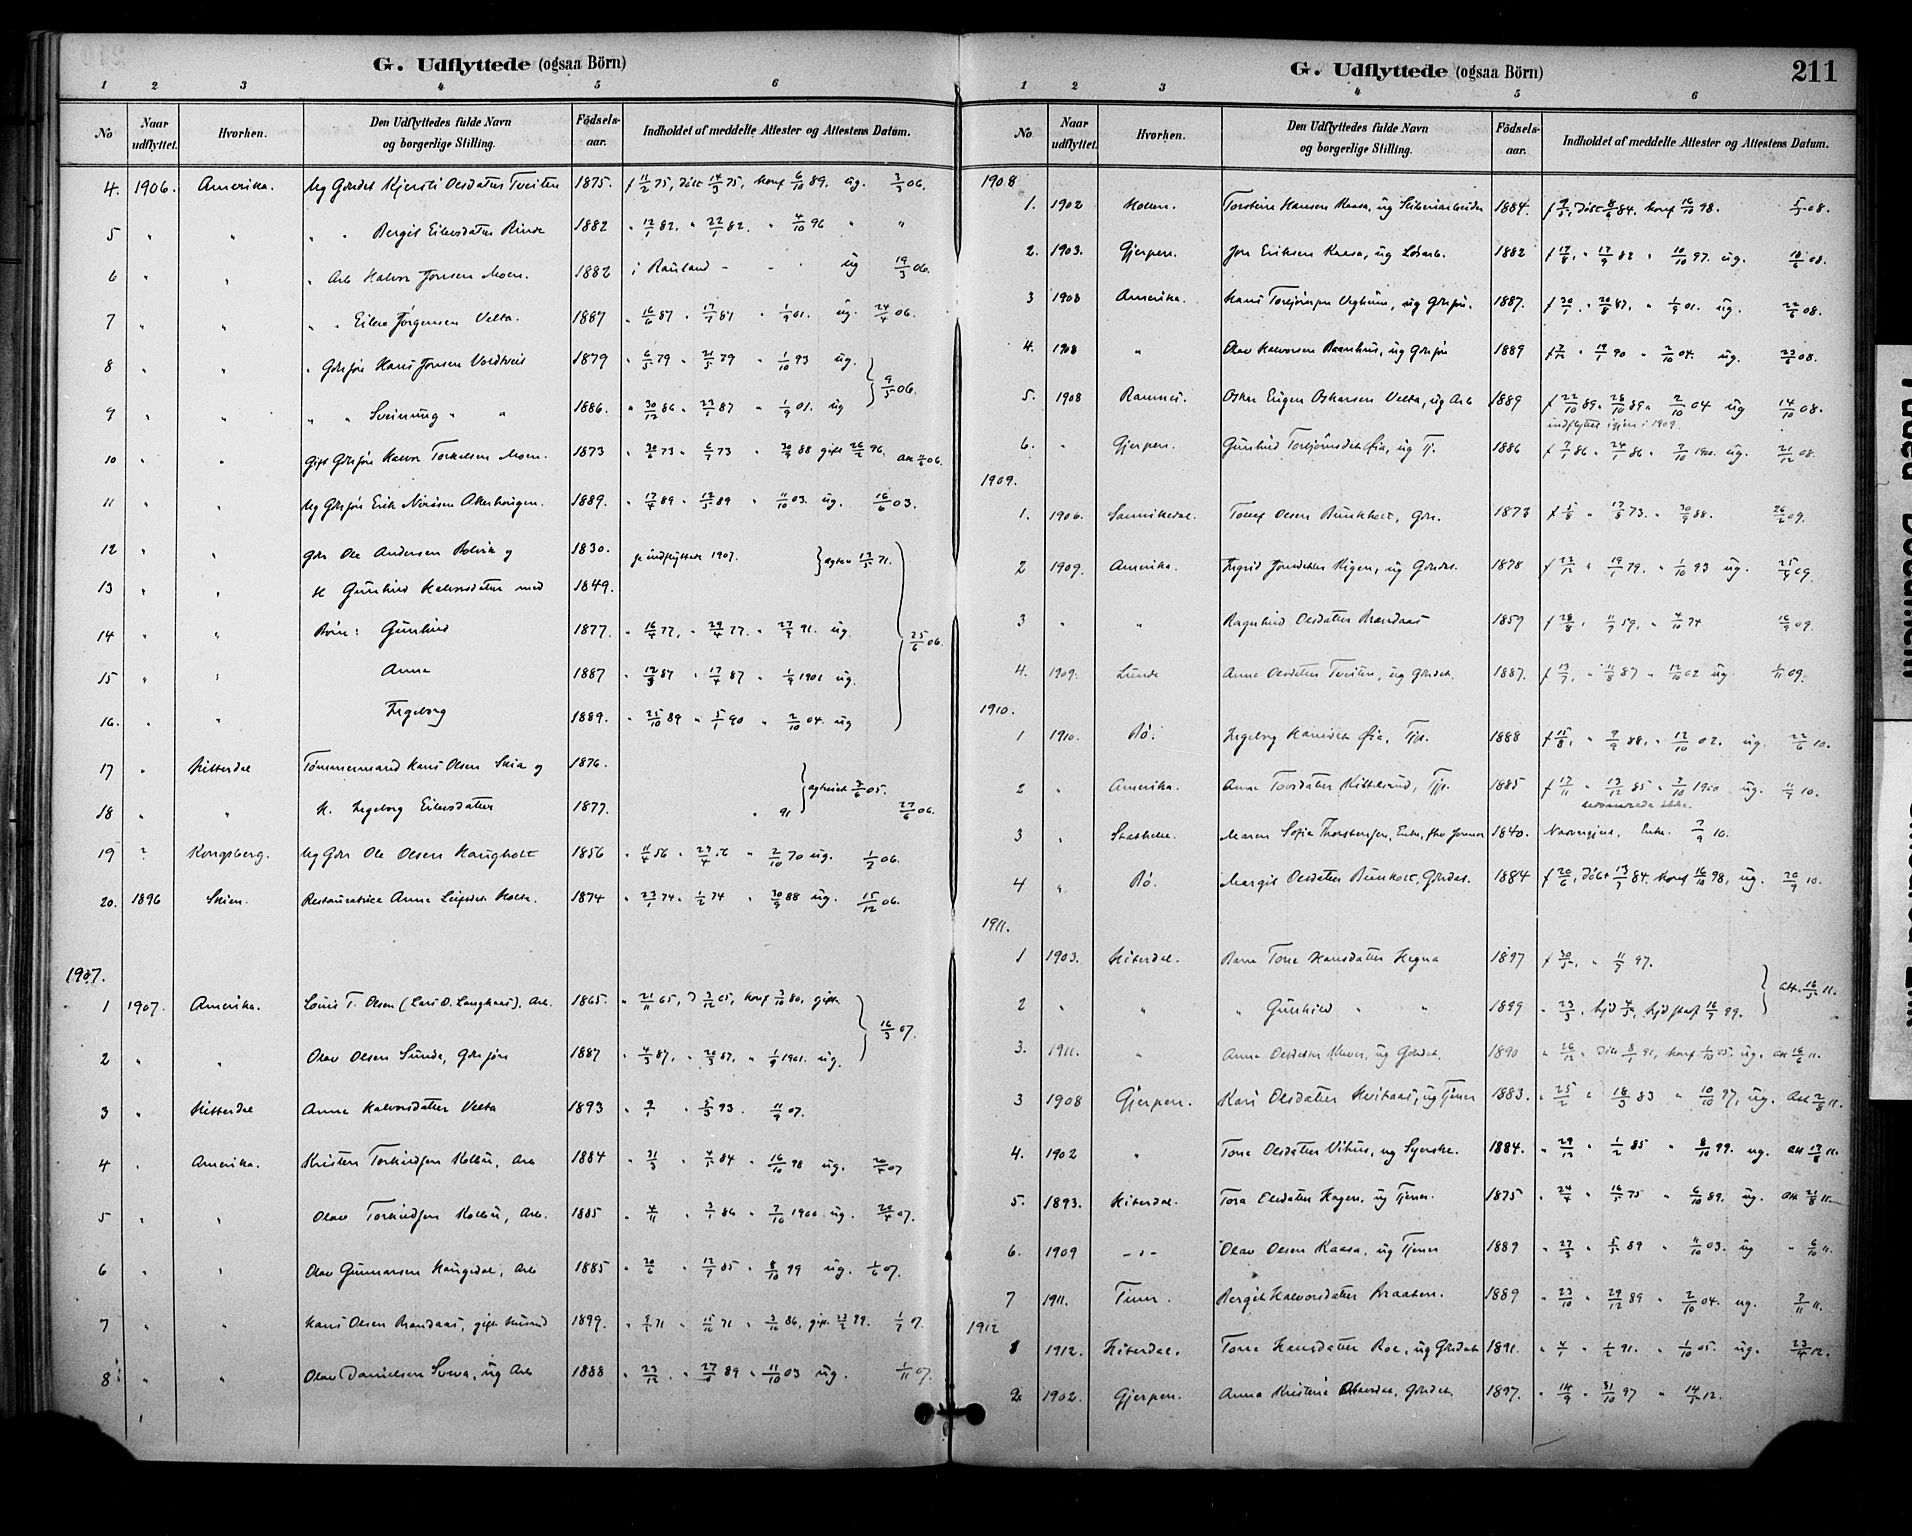 G. Udflyttede (ogsaa Börn)
1 2 3 4 5 6
No Naar udflyttet. Hvorhen. Den Udflyttedes fulde Navn og borgerlige Stilling. Födsels-aar. Indholdet af meddelte Attester og Attestens Datum.
4. 1906. Amerika. Ug Gdrdat Kjersti Olsdatter Tveiten 1875. f 11/2 75, döbt 14/3 75, konf 6/10 89. ug. 3/3 06.
5 " " " " Bergit Eilevsdatter Rinde 1882 " 12/1 82. " 22/1 82. " 4/10 96 " "
6 " " " Arb Halvor Jonsen Moen. 1882 i Rauland - - ug 19/3 06.
7 " " " " Eilev Jørgensen Velta. 1887 " 16/6 87 " 17/7 87 " 1/9 01. ug. 24/4 06.
8 " " " Gdrsøn Hans Jonsen 1879 " 6/5 79 " 21/5 79 " 1/10 93 ug.
9/5 06.
9 " " " " Sveinung " " 1886. " 30/12 86 " 23/1 87 " 1/9 01. ug
10 " " Gift Gdrsøn Halvor Torkelsen Moen. 1873 " 30/6 73 " 6/7 73 " 30/9 88 gift 26/2 96.
11 " " Ug Gdrsøn Erik 1889. " 17/4 89 " 12/5 89 " 11/10 03. ug. 16/6 03.
12 " " Gdr Ole Andersen Bolvik og 1830. indflyttede 1907. 71.
13 " " H Gunhild Halvorsdatter med 1849.
14 " " Børn: Gunhild 1877. " 16/4 77, " 29/4 77. " 23/9 91. ug.
25/6 06.
15 " " Anna 1887 " 12/3 87 " 17/4 87 " 1/9 1901 ug.
16. " " Ingeborg 1889. " 25/10 89 " 5/1 90 " 2/10 04. ug
17 " Hitterdal Tømmermand Hans Olsen og 1876.
3/6 05.
18 " " H. Ingeborg Eilevsdatter 1877. " 91 23/6 06.
19 ? Kongsberg. Ug Gdr Ole Olsen Haugholt 1856 " 11/4 56 " 27/4 56 " 2/10 70 ug. 1/2 06.
20. 1896 Skien. Restauratrice Anna Leifsdat Holta. 1874 " 23/1 74 " 1/2 74 " 30/9 88 ug. 15/12 06.
1907.
1 1907. Amerika. Louis T. Olsen (Lars O. Langkaas). Arb. 1865. " 21/11 65, D 3/12 65, konf 3/10 80, gift
16/3 07.
2 " " Olav Olsen Sunde, Gdrsøn 1887 " 4/3 87, " 20/3 87, " 1/9 1901. ug.
3 " Hitterdal Anna Halvorsdatter Velta 1893 " 2/1 " 5/3 93. 11/9 07.
4 " Amerika. Kristen Torkildsen Kolbu, Arb 1884 " 31/3 " 4/5 84 " 16/10 98 ug. 20/4 07
5 " " Olav Torkildsen Kolbu, Arb. 1885 " 4/11 " 3/1 86 " 7/10 1900 ug. 20/4 07.
6 " " Olav Gunnarsen Haugedal, Arb 1885 " 20/6 " 12/7 85 " 8/10 99 ug. 1/6 07.
7 " " Hans Olsen Brandaas, gift 1899. 71 " 71 " 3/10 86, gift 99.
8 " " Olav Danielsen Svova, ug Arb 1888 " 23/12 " 27/1 89 " 11/10 03 ug. 1/11 07.
G. Udflyttede (ogsaa Börn) 211
1 2 3 4 5 6
No Naar udflyttet. Hvorhen. Den Udflyttedes fulde Navn og borgerlige Stilling. Födsels-aar. Indholdet af meddelte Attester og Attestens Datum.
1908
1. 1902 Holden. Torstein Hansen Kaasa, ug 1884. döbt 8/6 84. konf 16/10 98. 08.
2. 1903. Gjerpen. Jon Eriksen Kaasa, ug Løsarb. 1882 f 17/8, " 17/9 82 " 10/10 97. ug. 18/6 08.
3 1908 Amerika. Hans Torbjørnsen ug Gdrsøn. 1887. f 30/7, " 20/8 87, " 1/9 01. ug. 22/6 08.
4. 1908 " Olav Halvorsen ug Gdrsøn 1889 " 19/1 90 " 2/10 04. ug. 23/6 08.
5. 1908 Ramnes. Oskar Eugen Oskarsen Velta, ug Arb 1889 f 22/10 89. " 28/10 89 " 2/10 04 ug 14/10 08.
indflyttet igjen i 1909.
6. " Gjerpen. Gunhild Torbjørnsdat Øia, ug Tj. 1886 86 " 24/1 86 " 7/10 1900. ug. 21/12 08.
1909.
1. 1906. Sannikedal. Tollef Olsen Bunkholt, Gdr. 1873 f 5/8 " 17/8 73. " 30/9 88. 26/2 09.
2 1909. Amerika. Ingrid Jonsdatter Rigen, ug Gdrdat. 1878 f 23/12 " 19/1 79. " 1/10 93 ug. 25/9 09.
3 " " Ragnhild Olsdatter Brandaas 1859 f 28/8, " 11/9 59, " 4/10 74 16/9 09.
4. 1909. Lunde Anna Olsdatter Tveiten, ug Gdrdat. 1887. f 13/7, " 11/8 87 " 12/10 02 ug. 1/11 09.
1910.
1 1910. Bø. Ingeborg Hansdat Øia, Tjp. 1888 f 15/8, " 9/9 88, " 12/10 02. ug. 22/6 10.
2 " Amerika. Anna Torsdatter Kittelsrud, Tjp. 1885 f 17/11 " 13/12 85 " 7/10 1900 ug. 11/7 10.
ikke.
3 " Stathelle. Maren Sofie Thorstensen, Enke, 1840. Enke. 7/9 10.
4 " Bø. Margit Olsdatter Bunkolt, Gdrdat. 1884 f 20/6, döbt 13/7 84. konf 16/10 98, ug. 20/9 10.
1911.
1 1903. Hiterdal. Barn Tone Hansdatter Hegna 1897 f 30/5, " 11/7 97.
11.
2 " " " Gunhild " " 1899 " 23/3, hjd hjd stadf 16/7 99.
3. 1911. " Anna Olsdatter ug Gdrdat. 1890 " 26/12 " döbt 8/1 91, konf 1/10 05. ug. att 16/6 11.
3 1908 Gjerpen. Kari Olsdatter ug Tjener 1883. " 25/2 " 18/3 83 " 10/10 97, ug. Att 2/8 11.
4. 1902 " Tone Olsdatter Vihus, ug Syerske. 1884. " 29/12 " 1/2 85 " 8/10 99. ug. att 17/8 11.
5. 1893. Hiterdal. Tora Olsdatter Hagen, ug Tjener. 1875 " 24/4 " 16/5 75 " 6/10 89. ug. Att 21/8 11.
6. 1909 -"- Olav Olsen Kaasa, ug Tjener 1889 " 27/3 " 5/5 89 " 11/10 03. ug " 6/10 11.
7 1911. Tinn. Bergit Halvorsdatter Braaten. 1889 " 23/10 " 29/12 89 " 2/10 04. ug. 7/11 11.
1912
1 1912. Hiterdal. Tone Hansdatter Roe, ug Gdrdat 1891. " 4/1 " 1/2 91. " 1/10 05. ug. 23/4 12.
2 1902. Gjerpen. Anna Kristine Gdrdat. 1897. " 14/9 " 31/10 97 " 12.